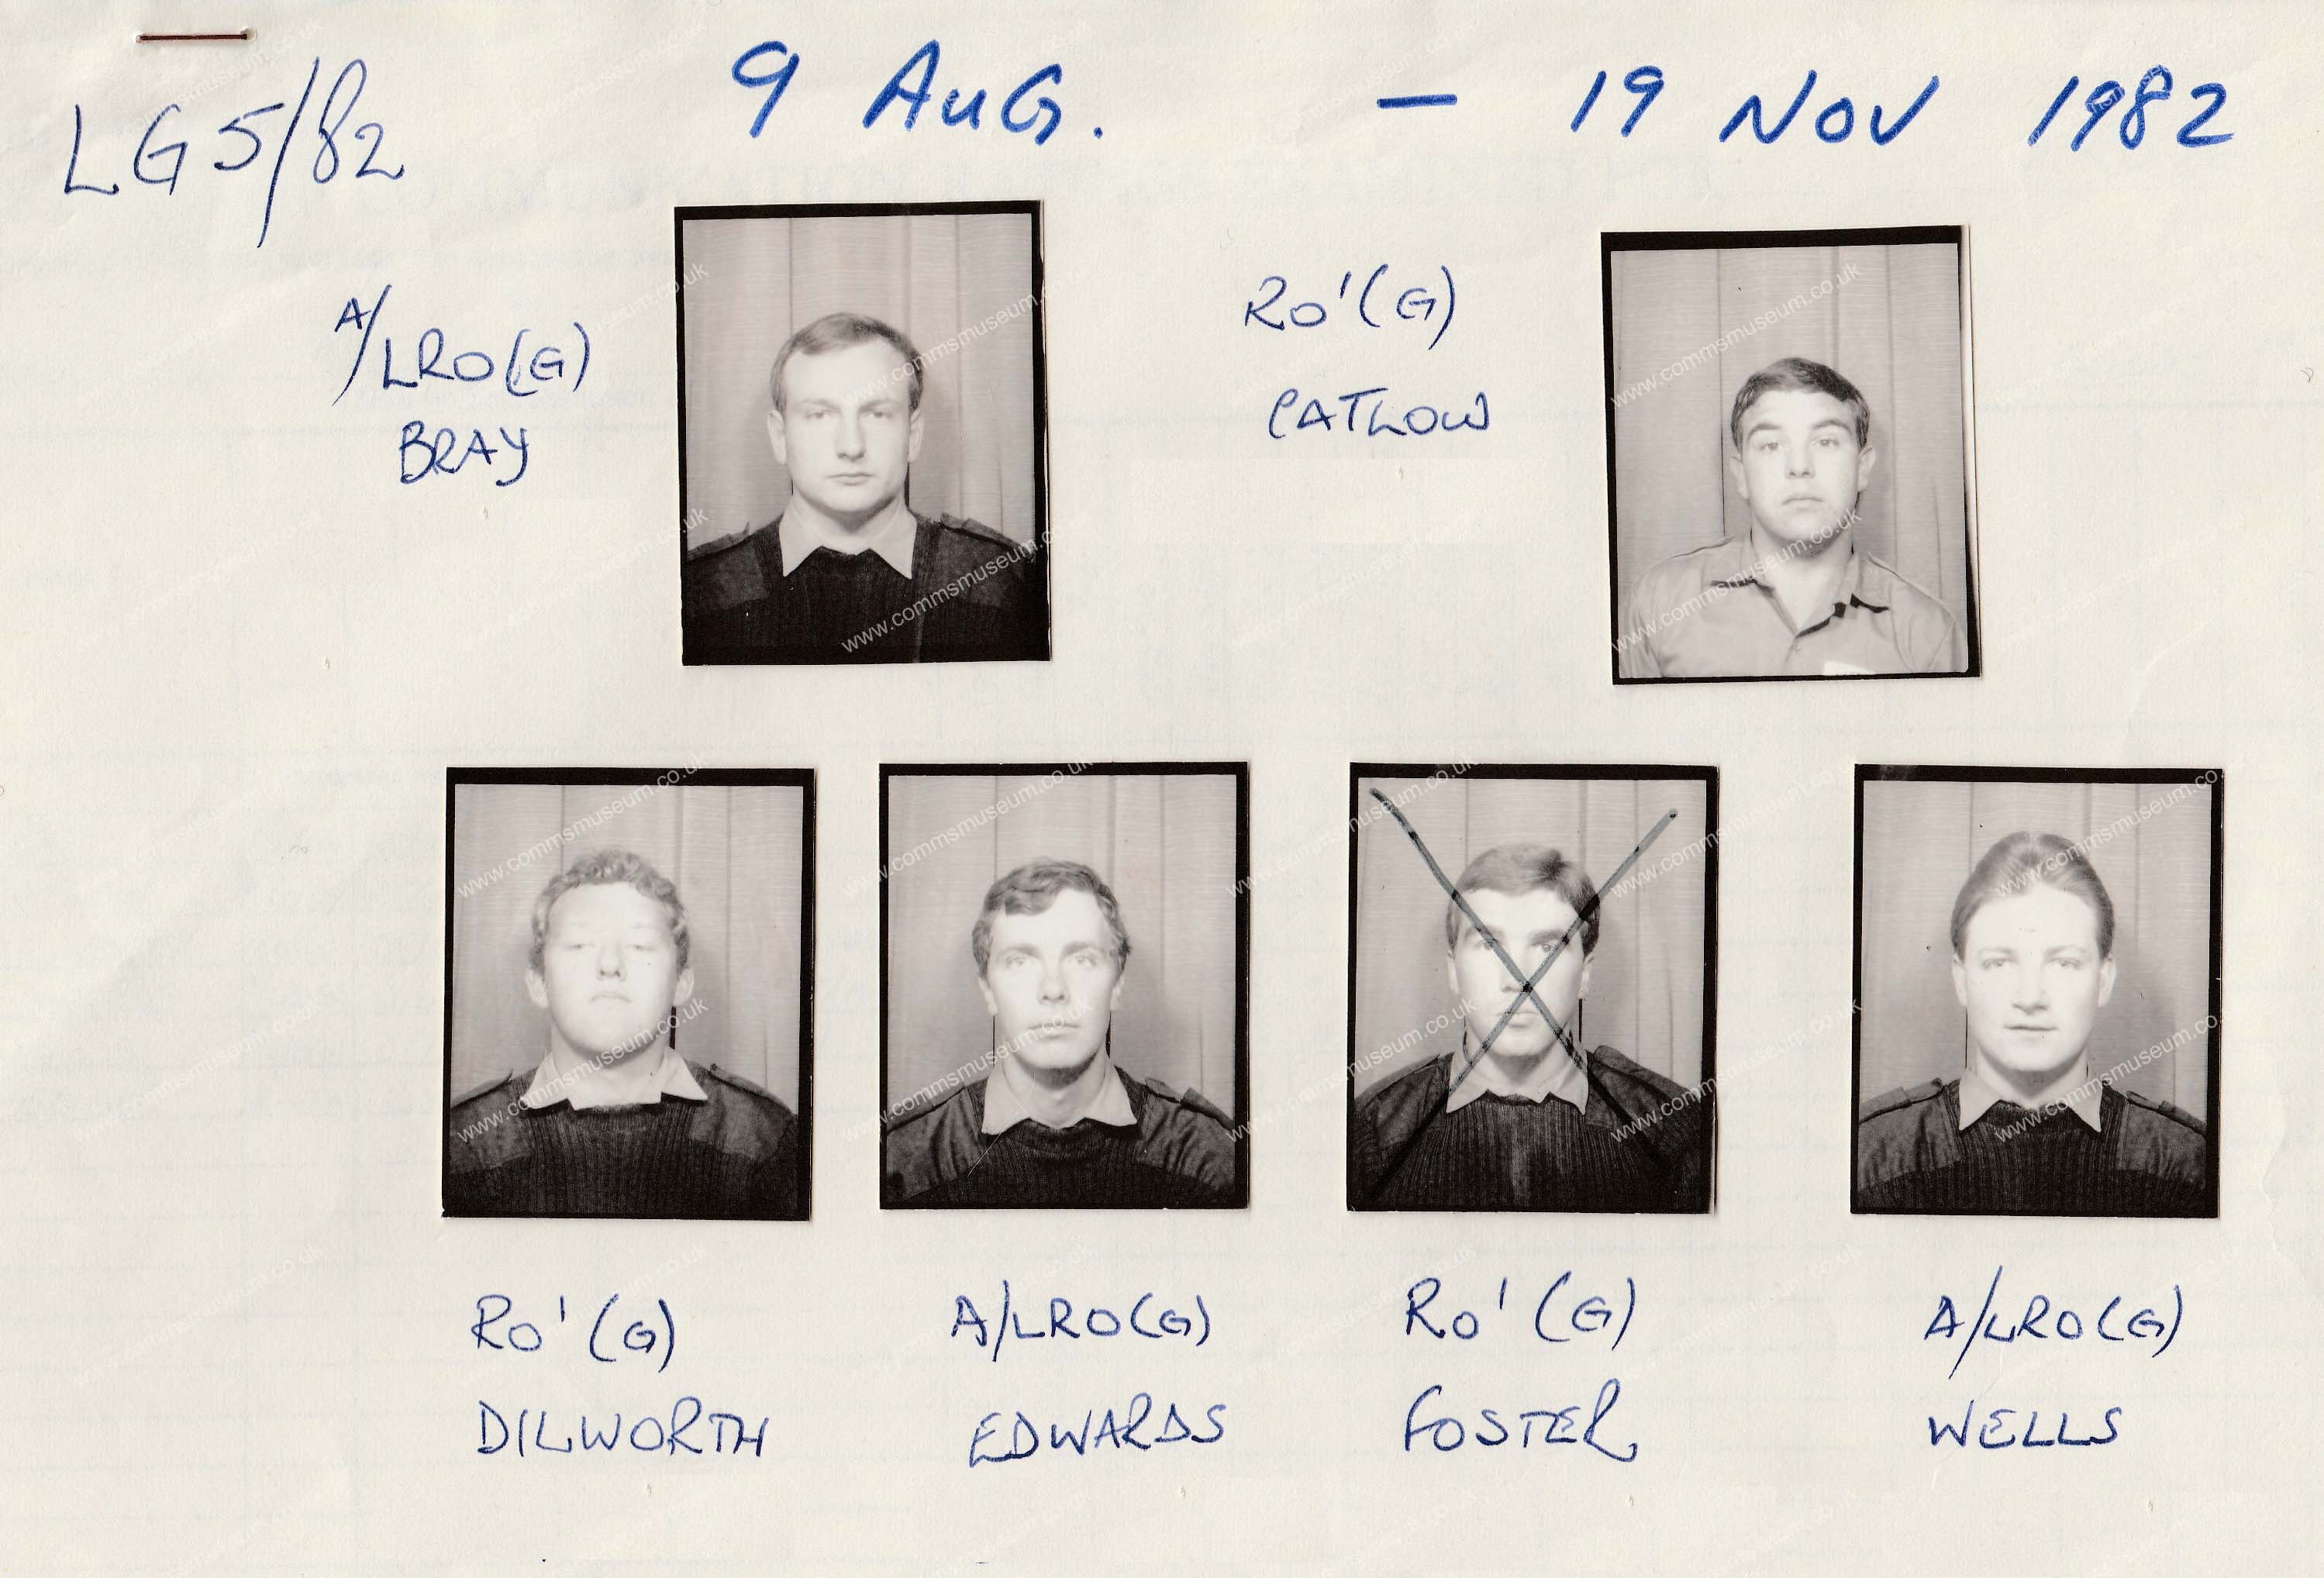 LG 5/82
9 AUG. – 19 NOV 1982
A/LRO(G)
BRAY
RO'(G)
CATLOW
RO'(G)
DILWORTH
A/LRO(G)
EDWARDS
RO'(G)
FOSTER
A/LRO(G)
WELLS
www.commsmuseum.co.uk